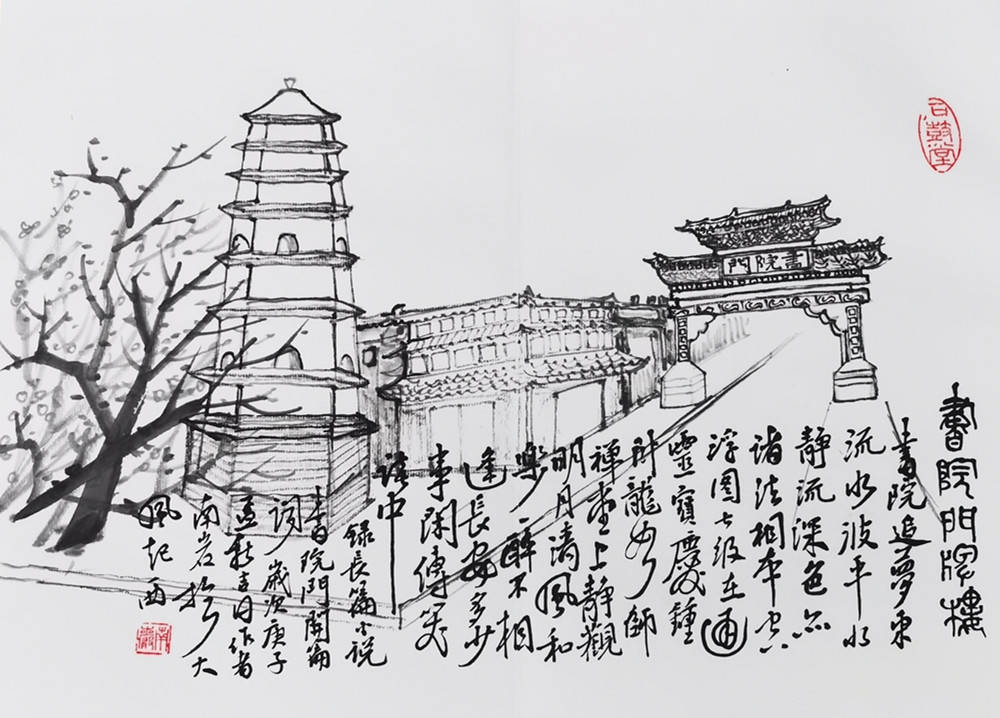 石鼓堂
書院門
書院門牌樓
書院追夢東
流水波平水
静流深色
諸法相本空
浮图七级在通
靈寶慶鐘
龍師
禪堂上静觀
明月清風和
樂一醉不相
逢長安多少
事閑傳笑
談中
錄長篇小説
書院門開篇
詞歲次庚子
孟秋吉日作者
南岩於大
風起雨